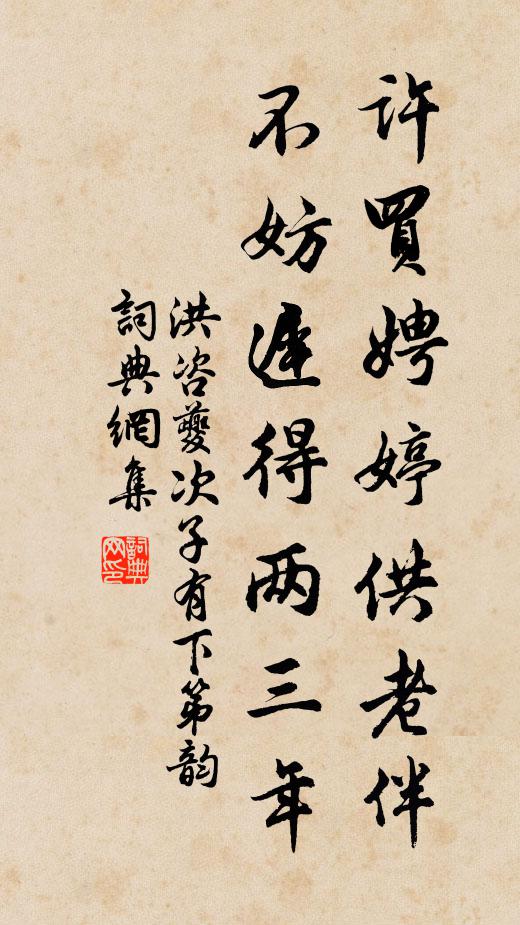 許買娉婷供老伴
不妨遲得两三年
洪咨夔次子有下第韵
詞典網集
詞典网印